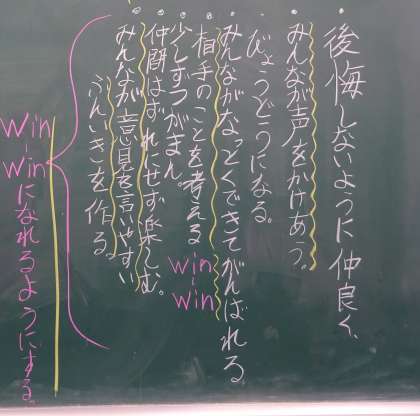 後悔しないように仲良く、
みんなが声をかけあう。
びょうどうになる。
みんながなっとくできてがんばれる
相手のことを考える
win-win
少しずつがまん。
仲間はずれにせず楽しむ。
みんなが意見を言いやすい
ふんいきを作る。
win-winになれるようにする。